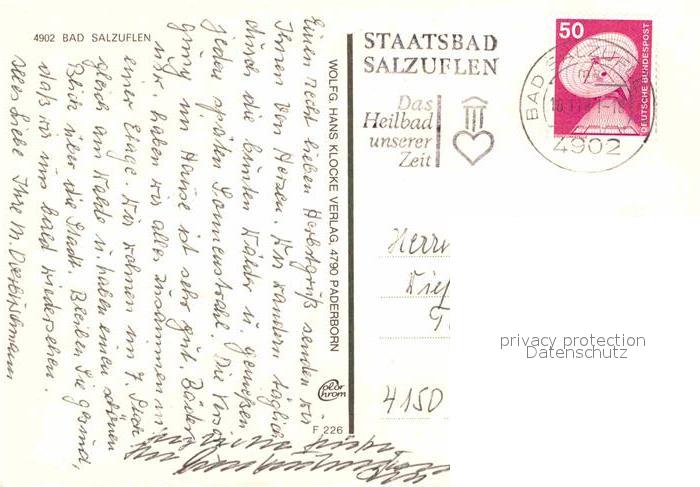 4902 BAD SALZUFLEN
Einen recht lieben Herbstgruß senden wir
Ihnen von Herzen. Wir wandern täglich
durch die bunten Wälder u. genießen
jeden späten Sonnenstrahl. Die Versor-
gung im Hause ist sehr gut. Bäder
usw. haben wir alles zusammen in
einer Etage. Wir wohnen im 7. Stock
gleich am Walde u. haben einen schönen
Blick über die Stadt. Bleiben Sie gesund,
daß wir uns bald wiedersehen.
alles Liebe Ihre M.
WOLFG. HANS KLOCKE VERLAG, 4790 PADERBORN
color
chrom
F 226
STAATSBAD
SALZUFLEN
Das
Heilbad
unserer
Zeit
50
DEUTSCHE BUNDESPOST
BAD SALZUFLEN
4902
Herrn
4150
privacy protection
Datenschutz